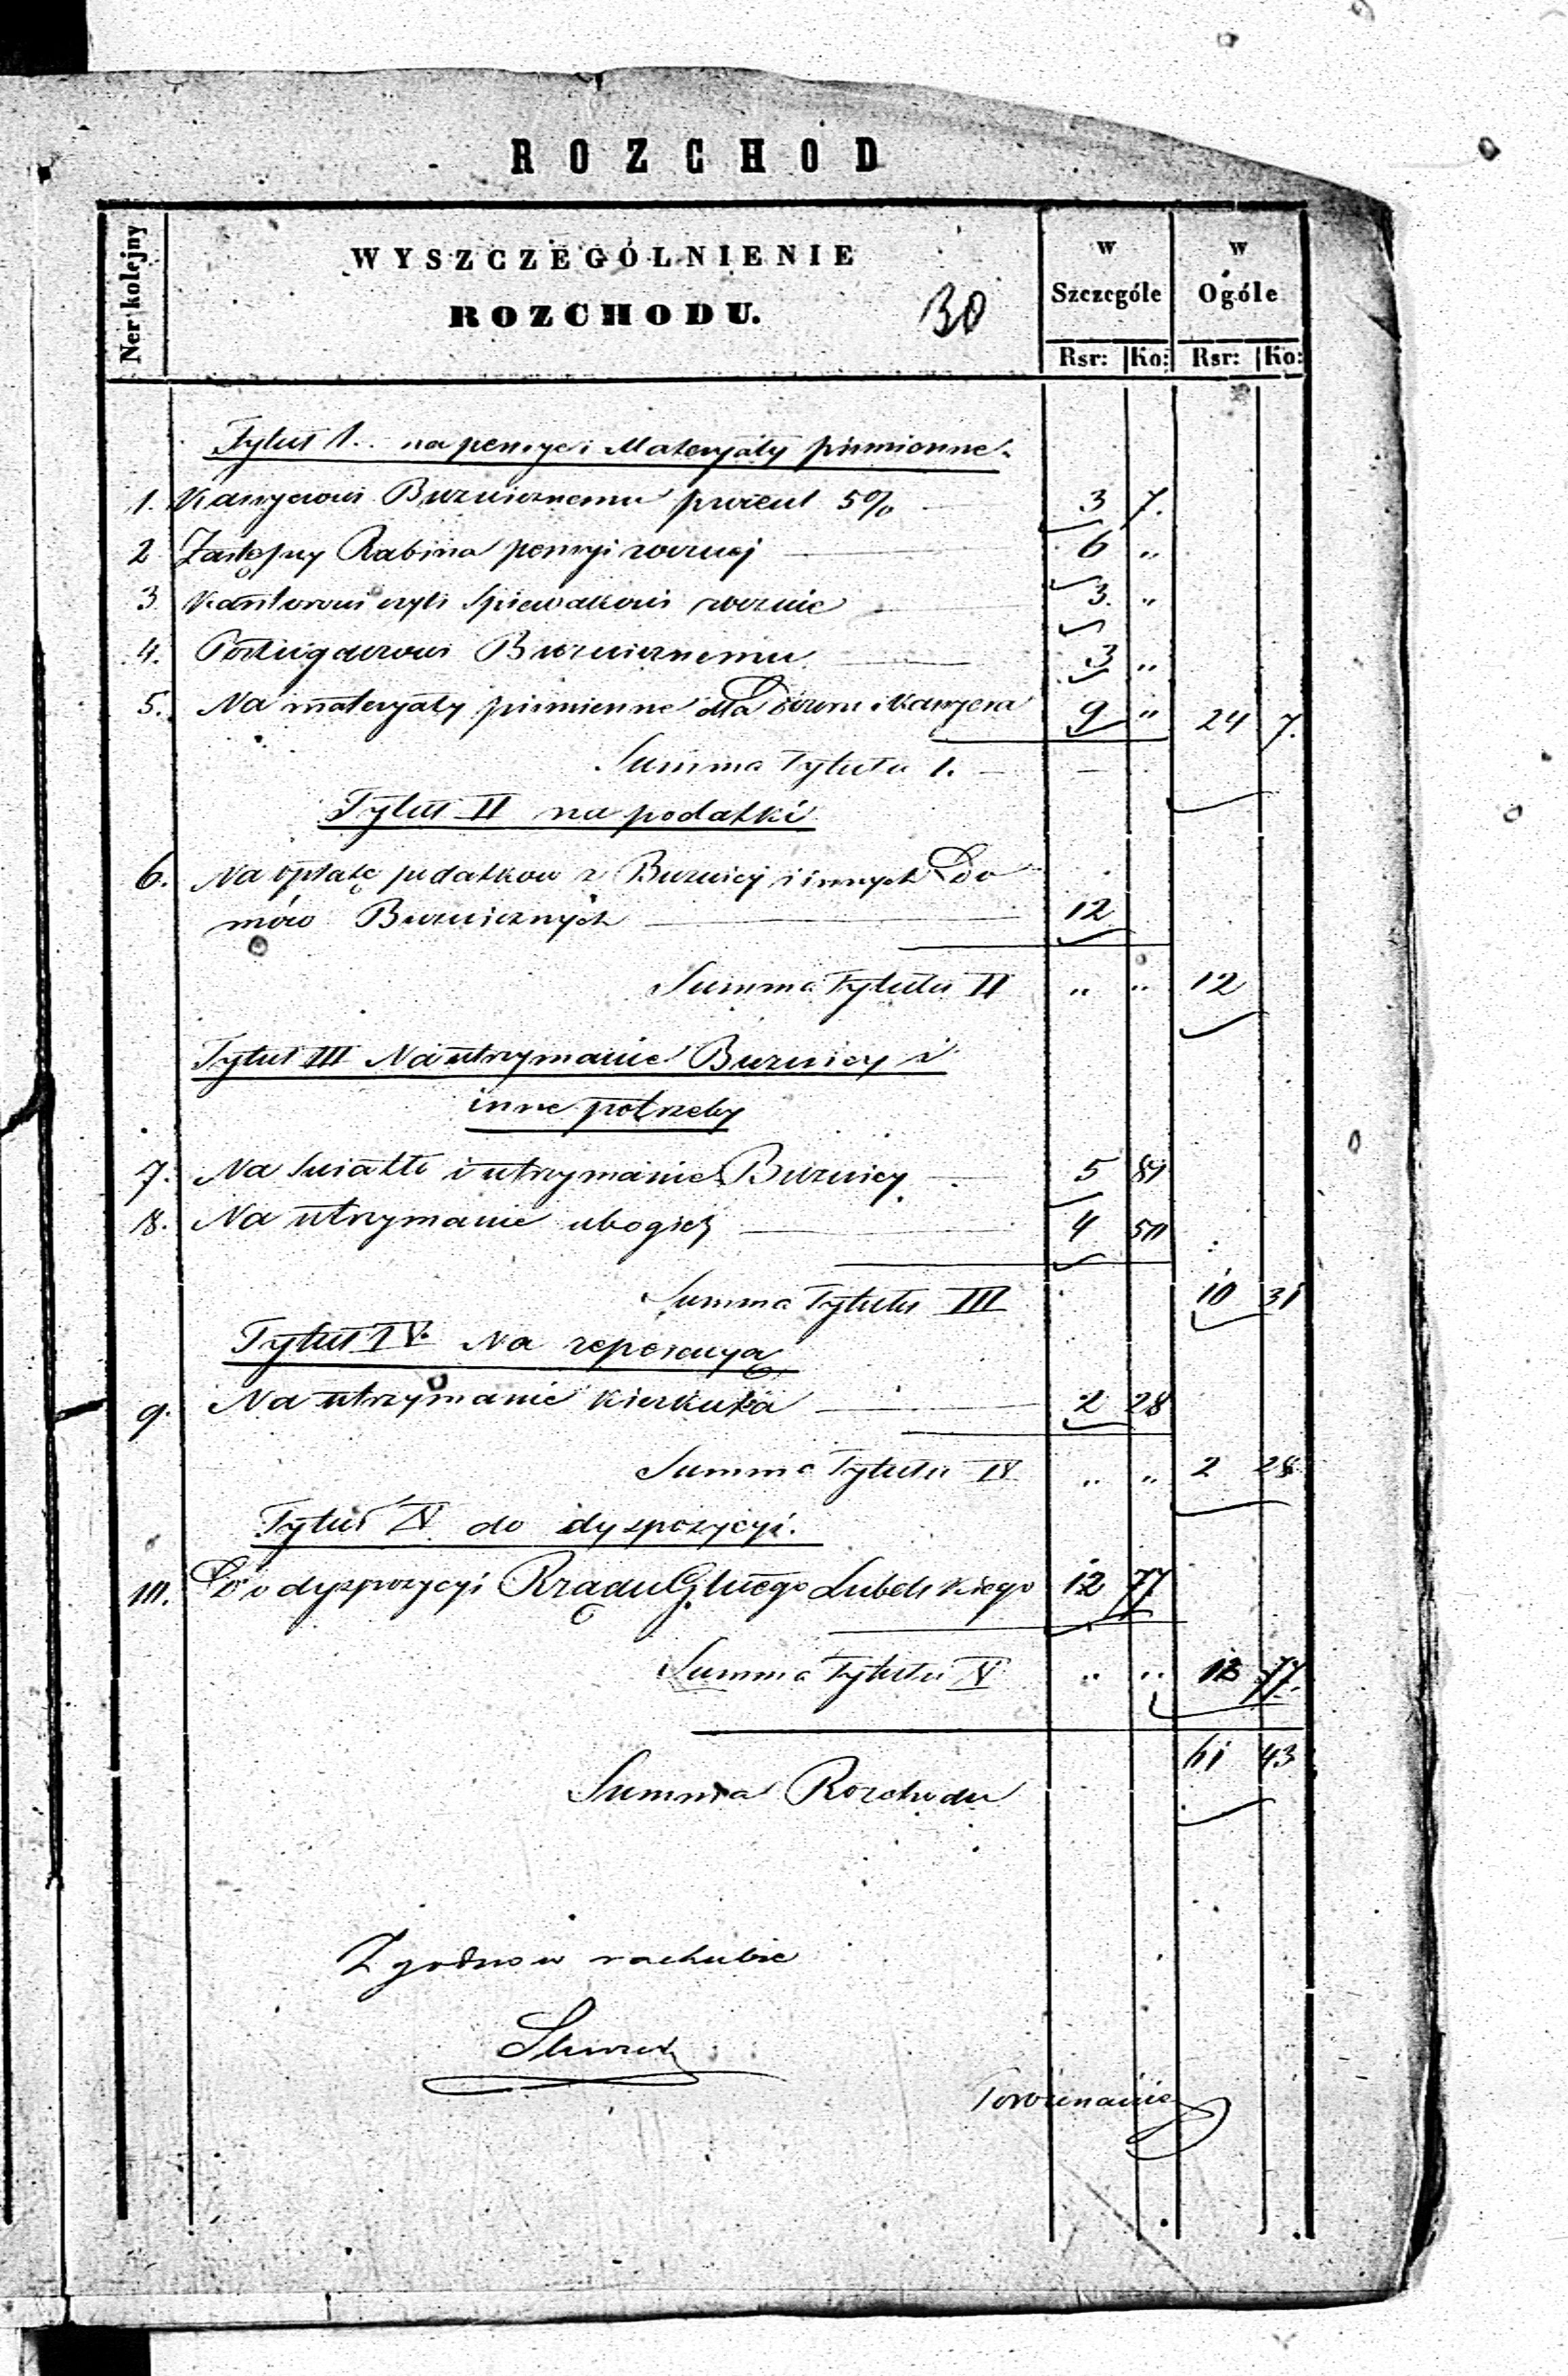 ROZCHOD
Ner kolejny
WYSZCZEGÓLNIENIE
ROZCHODU.
30
w Szczególe
w Ogóle
Rsr: Ko: Rsr: Ko:
Tytuł 1. na pensye i Materyały piśmienne
1. Kassyerowi Bużnicznemu procent 5% 3 7.
2 Zastępcy Rabina pensyi roczniej 6 "
3. Kantorowi czyli Spiewakowi rocznie 3. "
4. Posługaczowi Bużnicznemu 3 "
5. Na materyały piśmienne dla Dozoru i Kassyera 9 " 24 7.
Summa Tytułu 1.
Tytuł II na podatki
6. Na opłatę podatkow z Bużnicy i innych Do
mów Bużnicznych 12
Summa Tytułu II " " 12
Tytuł III Na utrzymanie Bużnicy i
inne potrzeby
7. Na światło i utrzymanie Bużnicy 5 81
8. Na utrzymanie ubogich 4 50
Summa Tytułu III 10 31
Tytuł IV. Na reperacyą
9. Na utrzymanie Kierkuta 2 28
Summa Tytułu IV " " 2 28
Tytuł V do dyspozycyi.
10. Do dyspozycyi Rządu Glnego Lubelskiego 12 77
Summa Tytułu V " " 12 77
61 43
Summa Rozchodu
Zgodno w rachubie
Porównanie